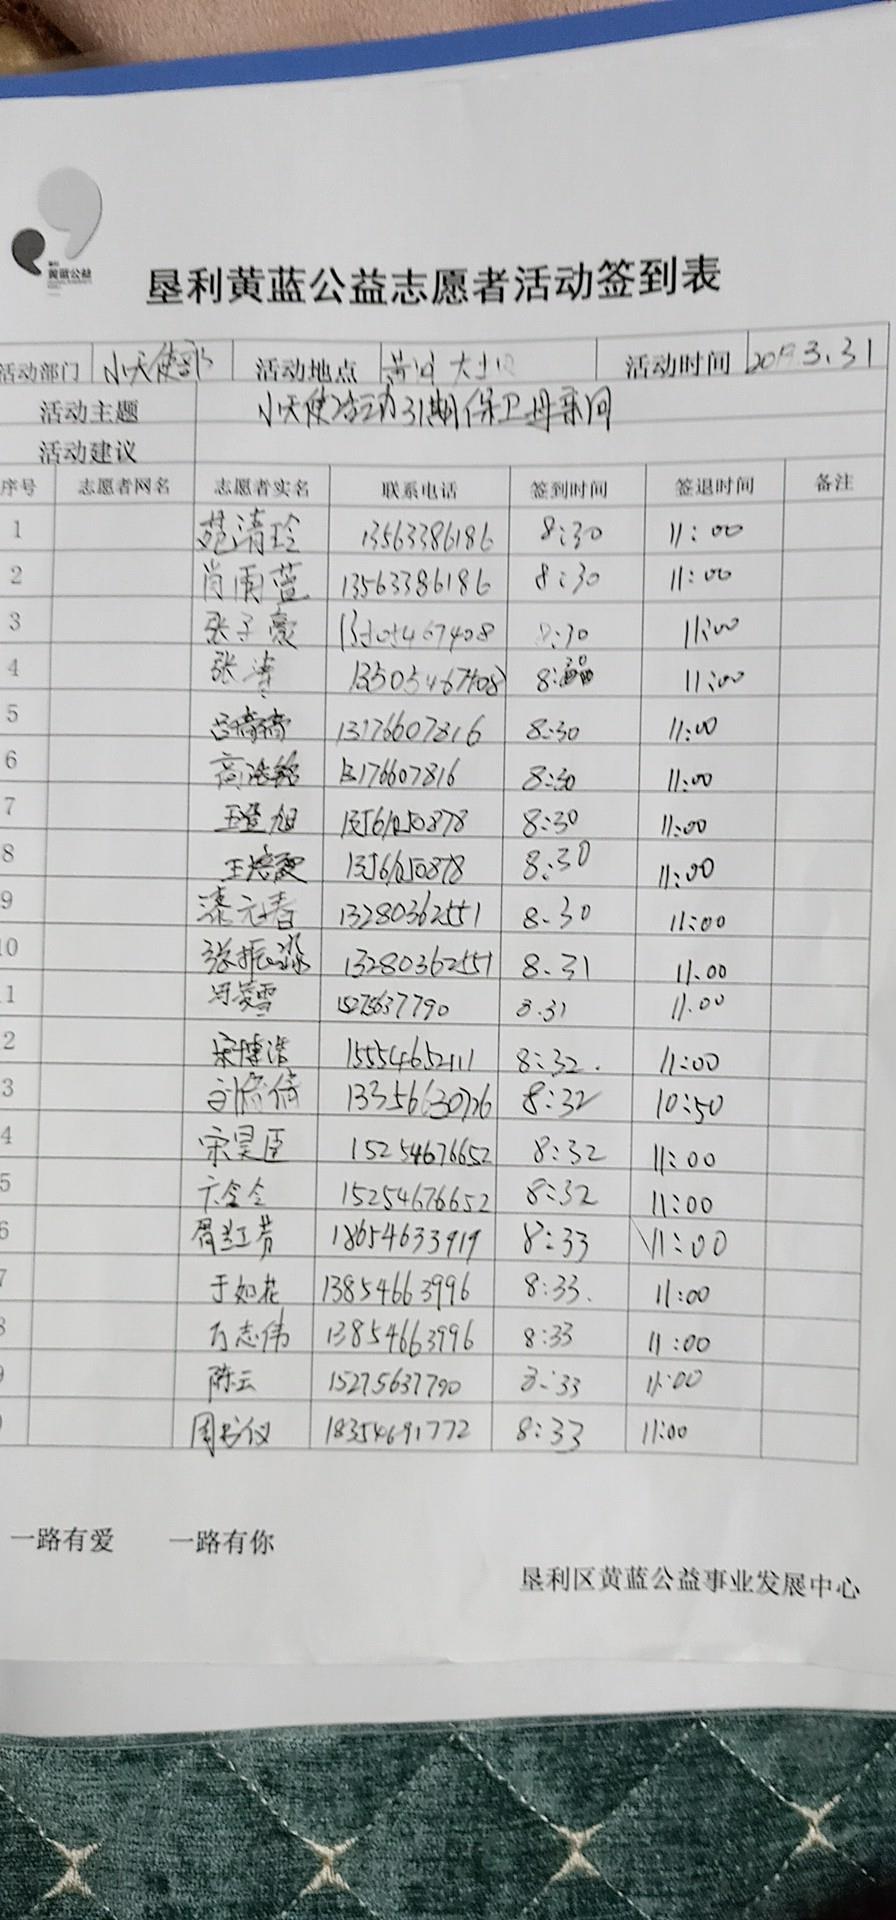 黄蓝公益
垦利黄蓝公益志愿者活动签到表
活动部门 小天使部 活动地点 黄河 活动时间 2019.3.31
活动主题 小天使活动31期保卫母亲河
活动建议
序号 志愿者网名 志愿者实名 联系电话 签到时间 签退时间 备注
1 苑清玲 13563386186 8:30 11:00
2 肖雨蓝 13563386186 8:30 11:00
3 张子豪 13505467408 8:30 11:00
4 张涛 13505467408 8:30 11:00
5 13176607816 8:30 11:00
6 13176607816 8:30 11:00
7 王登旭 8:30 11:00
8 8:30 11:00
9 漆元春 13280362551 8.30 11:00
10 张振 13280362551 8.31 11.00
1 15275637790 8.31 11.00
2 宋博浩 15554652111 8:32. 11:00
3 刘倩倩 13356630726 8:32 10:50
4 宋昊臣 15254676652 8:32 11:00
5 15254676652 8:32 11:00
6 18654633919 8:33 11:00
7 于如花 13854663996 8:33. 11:00
8 万志伟 13854663996 8:33 11:00
9 陈云 15275637790 8:33 11:00
周书仪 18354691772 8:33 11:00
一路有爱 一路有你
垦利区黄蓝公益事业发展中心